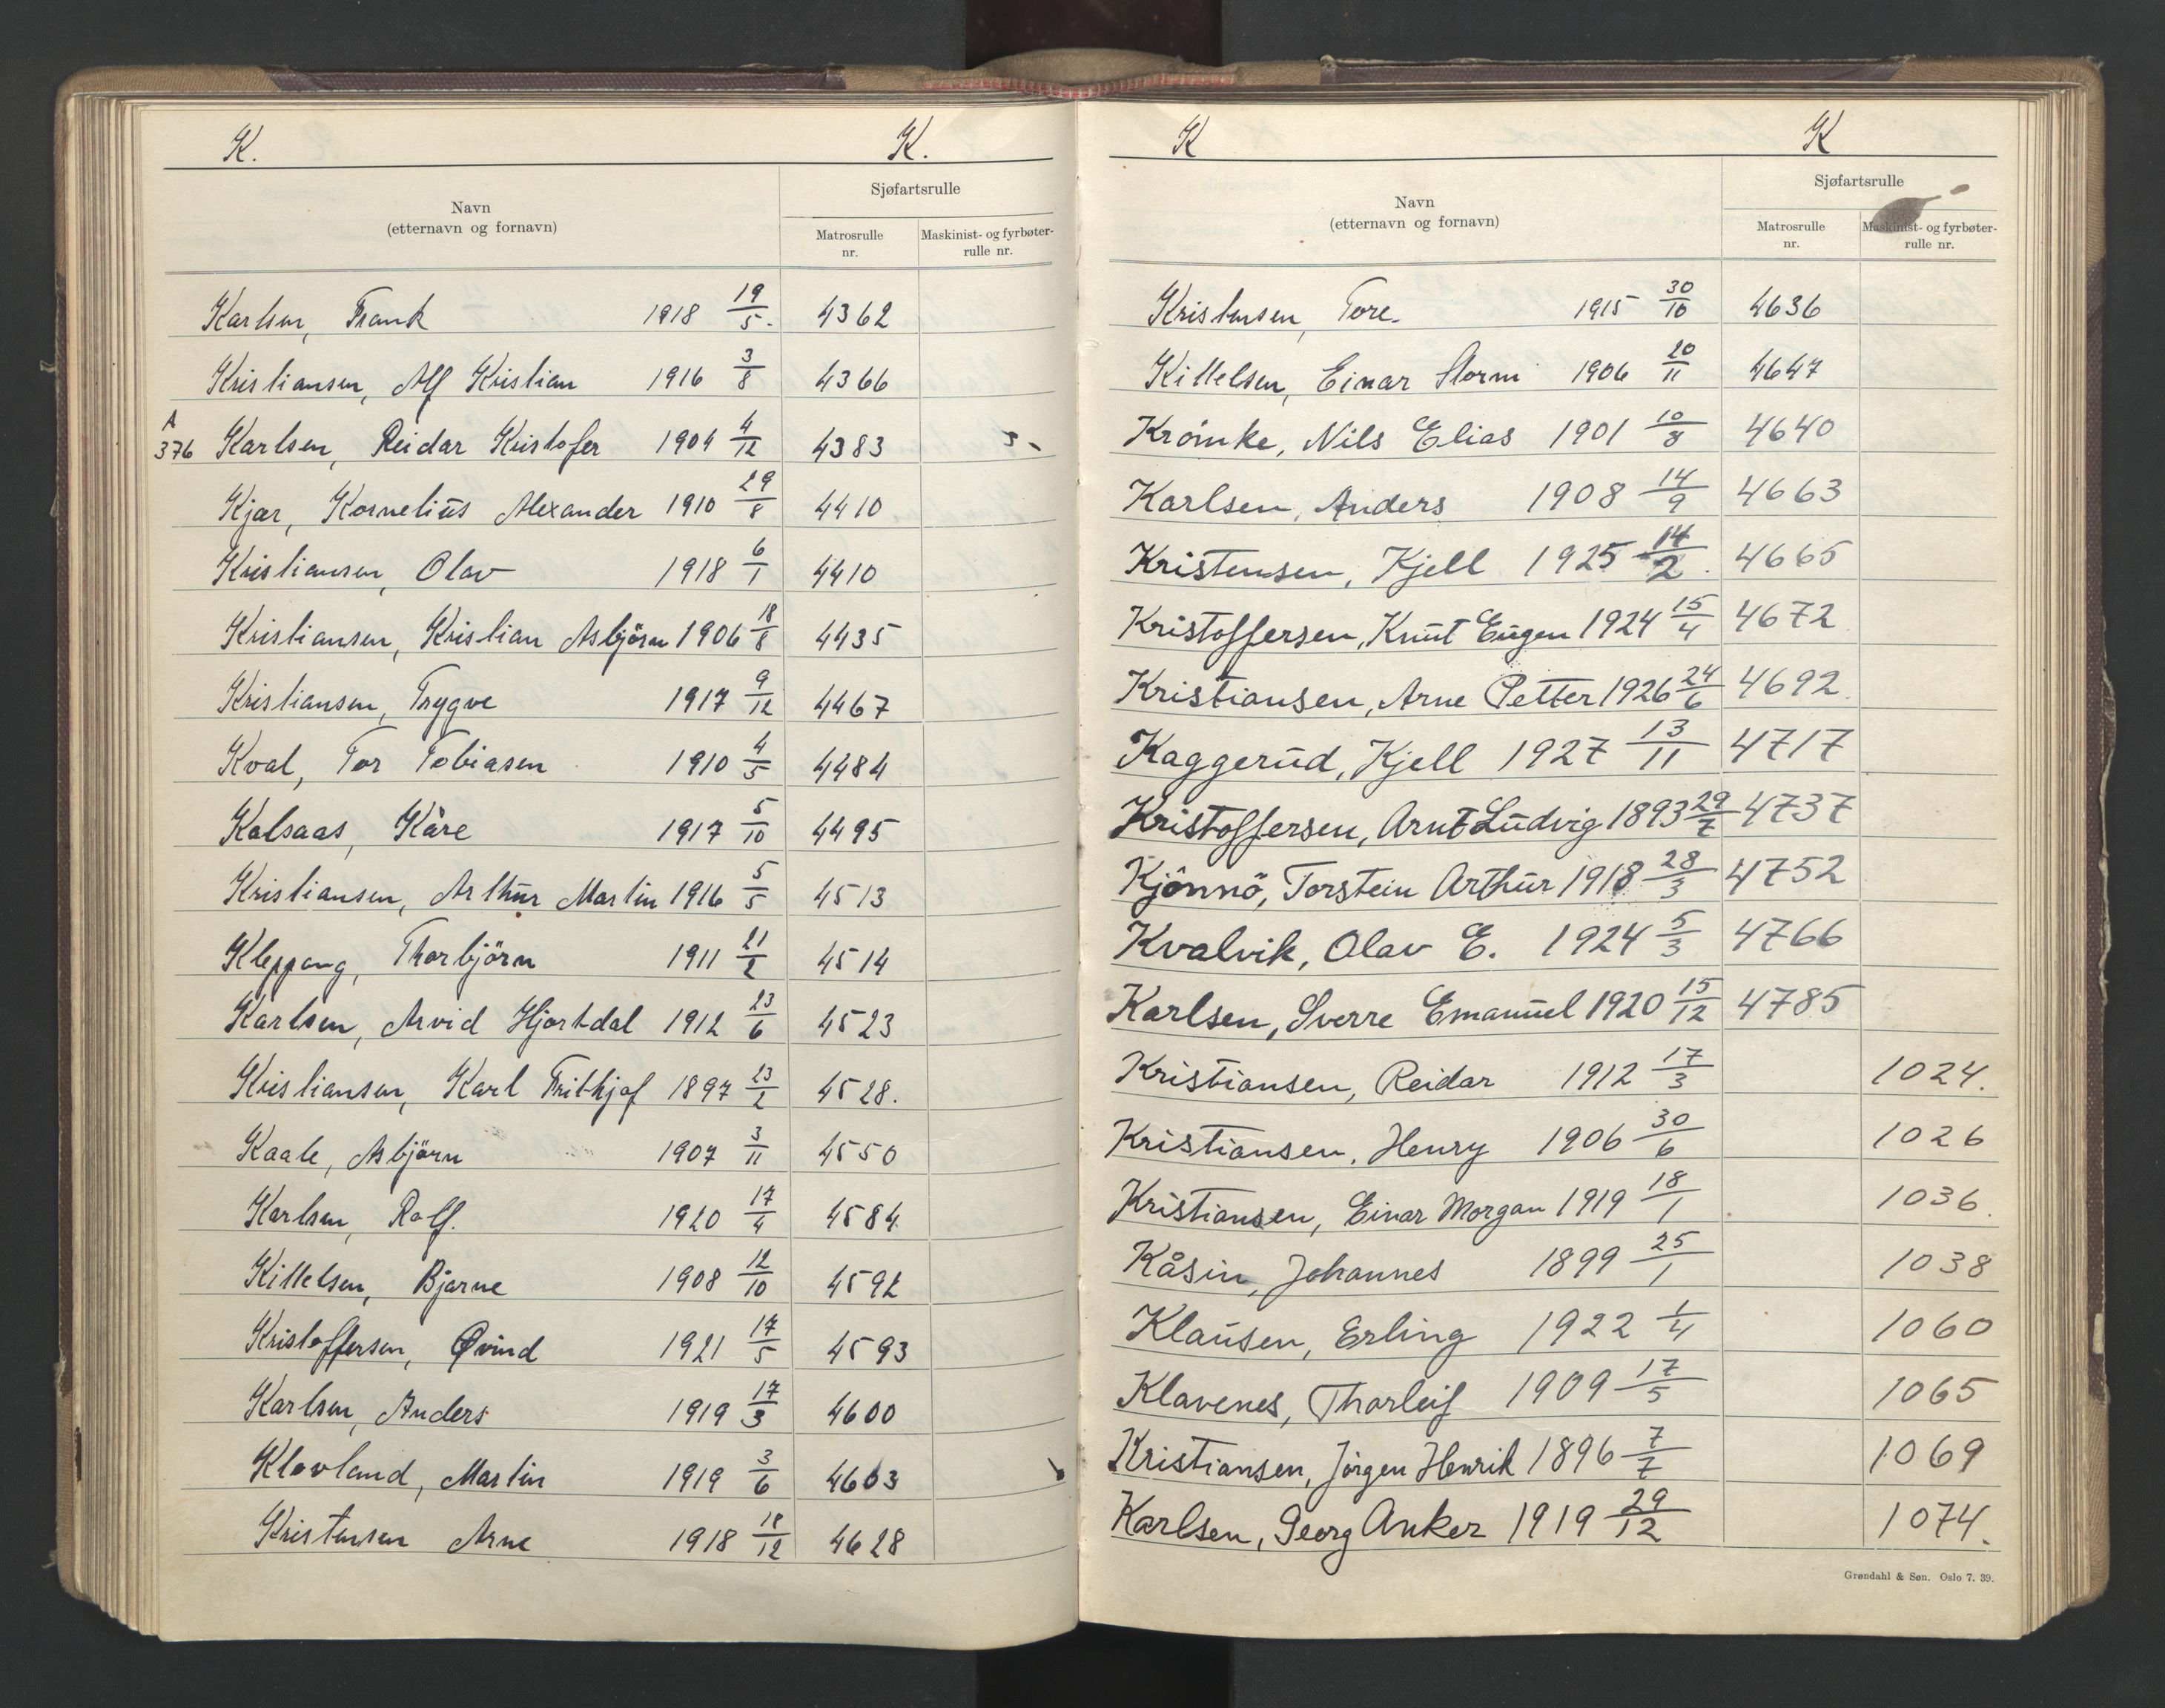 K. K.
Navn
(etternavn og fornavn)
Sjøfartsrulle
Matrosrulle
nr.
Maskinist- og fyrbøter-
rulle nr.
Karlsen, Frank 1918 19/5. 4362
Kristiansen, Alf Kristian 1916 3/8 4366
A
376 Karlsen, Reidar Kristofer 1904 4/12 4383
Kjær, Kornelius Alexander 1910 29/8 4410
Kristiansen, Olav 1918 6/1 4410
Kristiansen, Kristian Asbjörn 1906 18/8 4435
Kristiansen, Trygve 1917 9/12 4467
Kval, Tor Tobiasen 1910 4/5 4484
Kolsaas, Kåre 1917 5/10 4495
Kristiansen, Arthur Martin 1916 5/5 4513
Kleppang, Thorbjörn 1911 21/2 4514
Karlsen, Arvid Hjortdal 1912 23/6 4523
Kristiansen, Karl Frithjof 1897 23/2 4528.
Kaale, Asbjörn 1907 3/11 4550
Karlsen, Rolf. 1920 17/4 4584
Kittelsen, Bjarne 1908 12/10 4592
Kristoffersen, Øvind 1921 17/5 4593
Karlsen, Anders 1919 17/3 4600
Klovland, Martin 1919 3/6 4603
Kristensen Arne 1918 18/12 4628
K K
Navn
(etternavn og fornavn)
Sjøfartsrulle
Matrosrulle
nr.
Maskinist- og fyrbøter-
rulle nr.
Kristensen, Tore 1915 30/10 4636
Kittelsen, Einar Storm 1906 20/11 4647
Krömke, Nils Elias 1901 10/8 4640
Karlsen, Anders 1908 14/9 4663
Kristensen, Kjell 1925 14/2. 4665
Kristoffersen, Knut Eugen 1924 15/4 4672
Kristiansen, Arne Petter 1926 24/6 4692
Kaggerud, Kjell 1927 13/11 4717
Kristoffersen, Arnt Ludvig 1893 29/7 4737
Kjönnö, Torstein Arthur 1918 28/3 4752
Kvalvik, Olav E. 1924 5/3 4766
Karlsen, Sverre Emanuel 1920 15/12 4785
Kristiansen, Reidar 1912 17/3 1024.
Kristiansen, Henry 1906 30/6 1026
Kristiansen, Einar Morgan 1919 18/1 1036.
Kåsin, Johannes 1899 25/1 1038
Klausen, Erling 1922 1/4 1060
Klavenes, Thorleif 1909 17/5 1065
Kristiansen, Jörgen Henrik 1896 7/7 1069
Karlsen, Georg Anker 1919 29/12 1074.
Grøndahl & Søn. Oslo 7. 39.